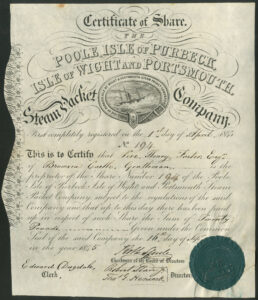 Certificate of Share.
THE
POOLE, ISLE OF PURBECK,
ISLE OF WIGHT AND PORTSMOUTH,
Steam Packet Company.
First completely registered on the 1st day of April, 1845
No. 194
This is to Certify that Henry
Castle, is the
proprietor of the Share Number 194 of the Poole
Isle of Purbeck, Isle of Wight and Portsmouth Steam
Packet Company, subject to the regulations of the said
Company and that up to this day there has been paid
up in respect of such Share the Sum of Twenty
Pounds. Given under the Common
Seal of the said Company the day of
in the year 1845
Chairman of the Board of Directors
Edward
Clerk. Directors